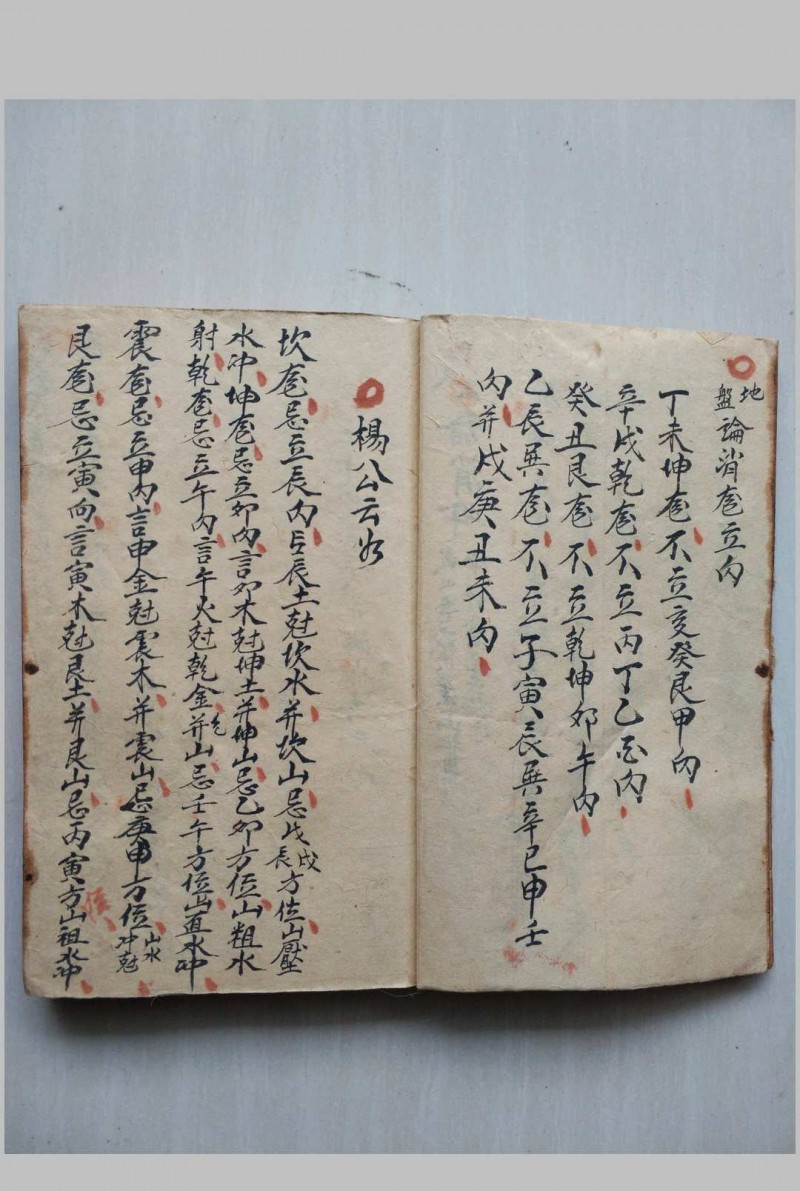 地盤論消龙立向
丁未坤龙不立亥癸艮甲向
辛戌乾龙不立丙丁乙酉向
癸丑艮龙不立乾坤卯午向
乙辰巽龙不立子寅辰巽辛巳申壬
向并戌庚丑未向
楊公云
坎龙忌立辰向辰土尅坎水并坎山忌戊戌辰方位山壓
水冲坤龙忌立卯向言卯木尅坤土并坤山忌乙卯方位山粗水
射乾龙忌立午向言午火尅乾金并乾山忌壬午方位山直水冲
震龙忌立申向言申金尅震木并震山忌庚申方位山水冲尅
艮龙忌立寅向言寅木尅艮土并艮山忌丙寅方位山祖水冲